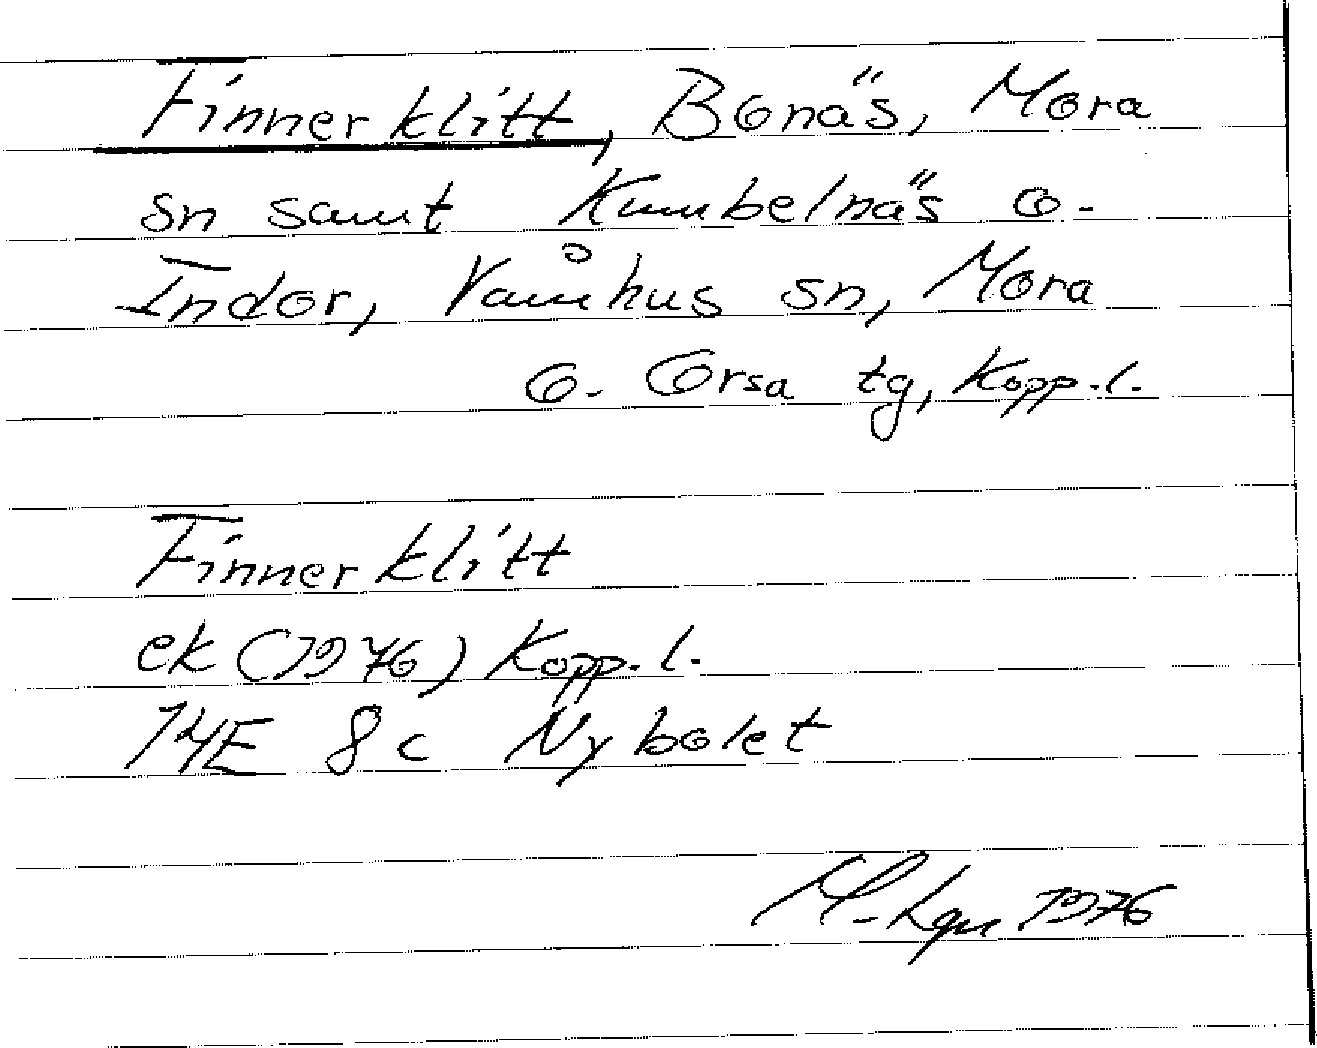 Finnerklitt, Bonäs, Mora
sn samt Kumbelnäs o.
Indor, Våmhus sn, Mora
o. Orsa tg, Kopp.l.
Finnerklitt
ek (1976) Kopp.l.
14E 8c Nybolet
1976